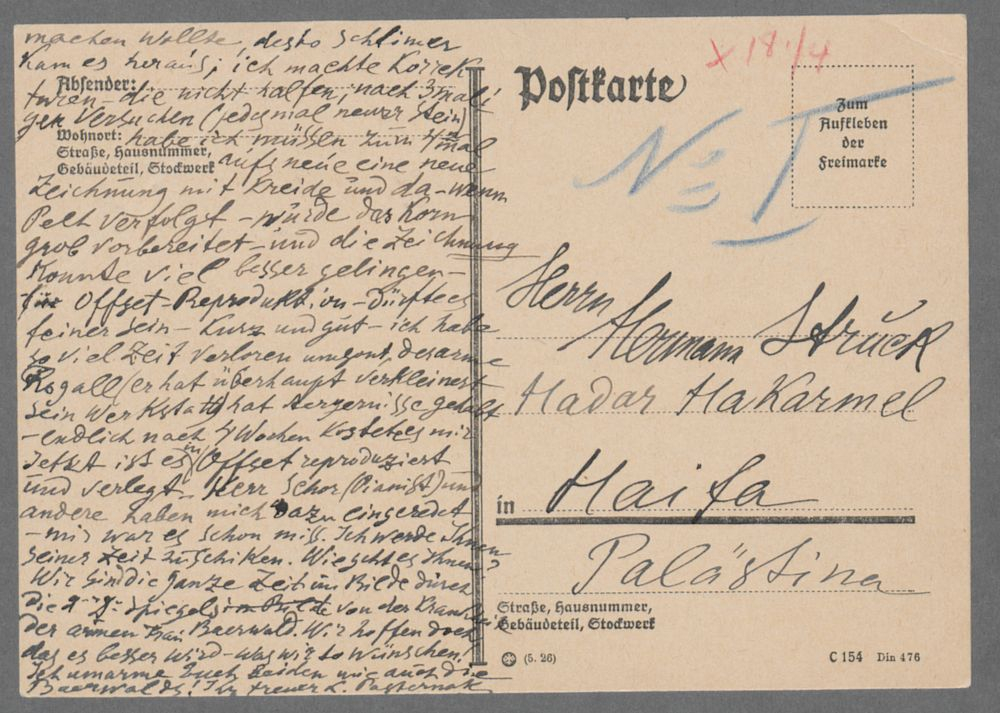 machen wollte, desto schlimer
kam es heraus; ich machte Korrek
turen – die nicht halfen, nach 3 mali
gen Versuchen (jedesmal neuer Stein)
habe ich müssen zum 4 mal
aufs neue eine neue
Zeichnung mit Kreide und da – wenn
Pech verfolgt – würde das Korn
grob vorbereitet – und die Zeichnung
konnte viel besser gelingen –
Offset-Reproduktion – dürfte es
feiner sein – Kurz und gut – ich habe
so viel Zeit verloren umsonst, der arme
Rogall (er hat überhaupt verkleinert
sein Werkstatt) hat Aergernisse gehabt
– endlich nach 4 Wochen kostete es mir
Jetzt ist es in Offset reproduziert
und verlegt. Herr Schor (Pianist) und
andere haben mich dazu eingeredet
– mir war es schon miss. Ich werde Ihnen
seiner Zeit zuschiken. Wie geht es Ihnen?
Wir sind die ganze Zeit im Bilde durch
Die Spiegels von der Krankheit
der armen Frau Baerwald. Wir hoffen doch
das es besser wird – was wir so wünschen!
Ich umarme Euch beiden wie auch die
Baerwalds! Ihr treuer L. Pasternak
Absender:
Wohnort:
Straße, Hausnummer,
Gebäudeteil, Stockwerk
Postkarte
x 18./4
No I
Zum
Aufkleben
der
Freimarke
Herrn
Hermann Struck
Hadar HaKarmel
in Haifa
Palästina
Straße, Hausnummer,
Gebäudeteil, Stockwerk
(5. 26)
C 154 Din 476